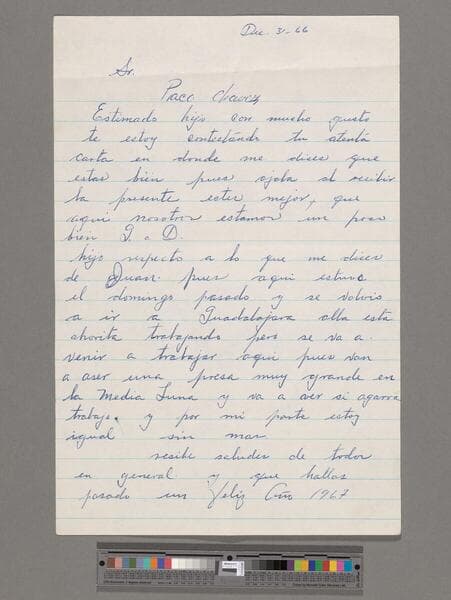 Dec. 31-66
Sr.
Paco Chavez
Estimado hijo con mucho gusto
te estoy contestando tu atenta
carta en donde me dices que
estas bien pues ojala al recibir
la presente estes mejor, que
aqui nosotros estamos un poco
bien G. a D.
hijo respecto a lo que me dices
de Juan. pues aqui estuvo
el domingo pasado y se volvio
a ir a Guadalajara alla esta
ahorita trabajando pero se va a.
venir a trabajar aqui pues van
a aser una presa muy grande en
la Media Luna y va a ver si agarra
trabajo. y por mi parte estoy
igual sin mas
resibe saludes de todos
en general y que hallas
pasado un feliz Año 1967